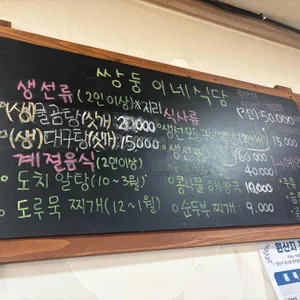 쌍둥이네식당
생선류 (2인이상)X지리
(생)곰탕(싯가) 20000
(생)대구탕(싯가) 15000
계절음식 (2인이상)
도치 알탕 (10~3월)
도루묵 찌개 (12~1월)
식사류
50,000
생선모듬
15,000
생선찜
60000
40000
콩나물 해장국 10,000
순두부 찌개 9,000
원산지